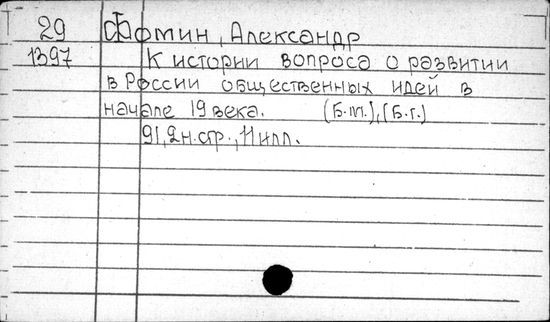 29 Фомин, Александр
1397 К истории вопроса о развитии
в России общественных идей в
начале 19 века. (Б.м.), (Б.г.)
91, 2н.стр., 11 илл.